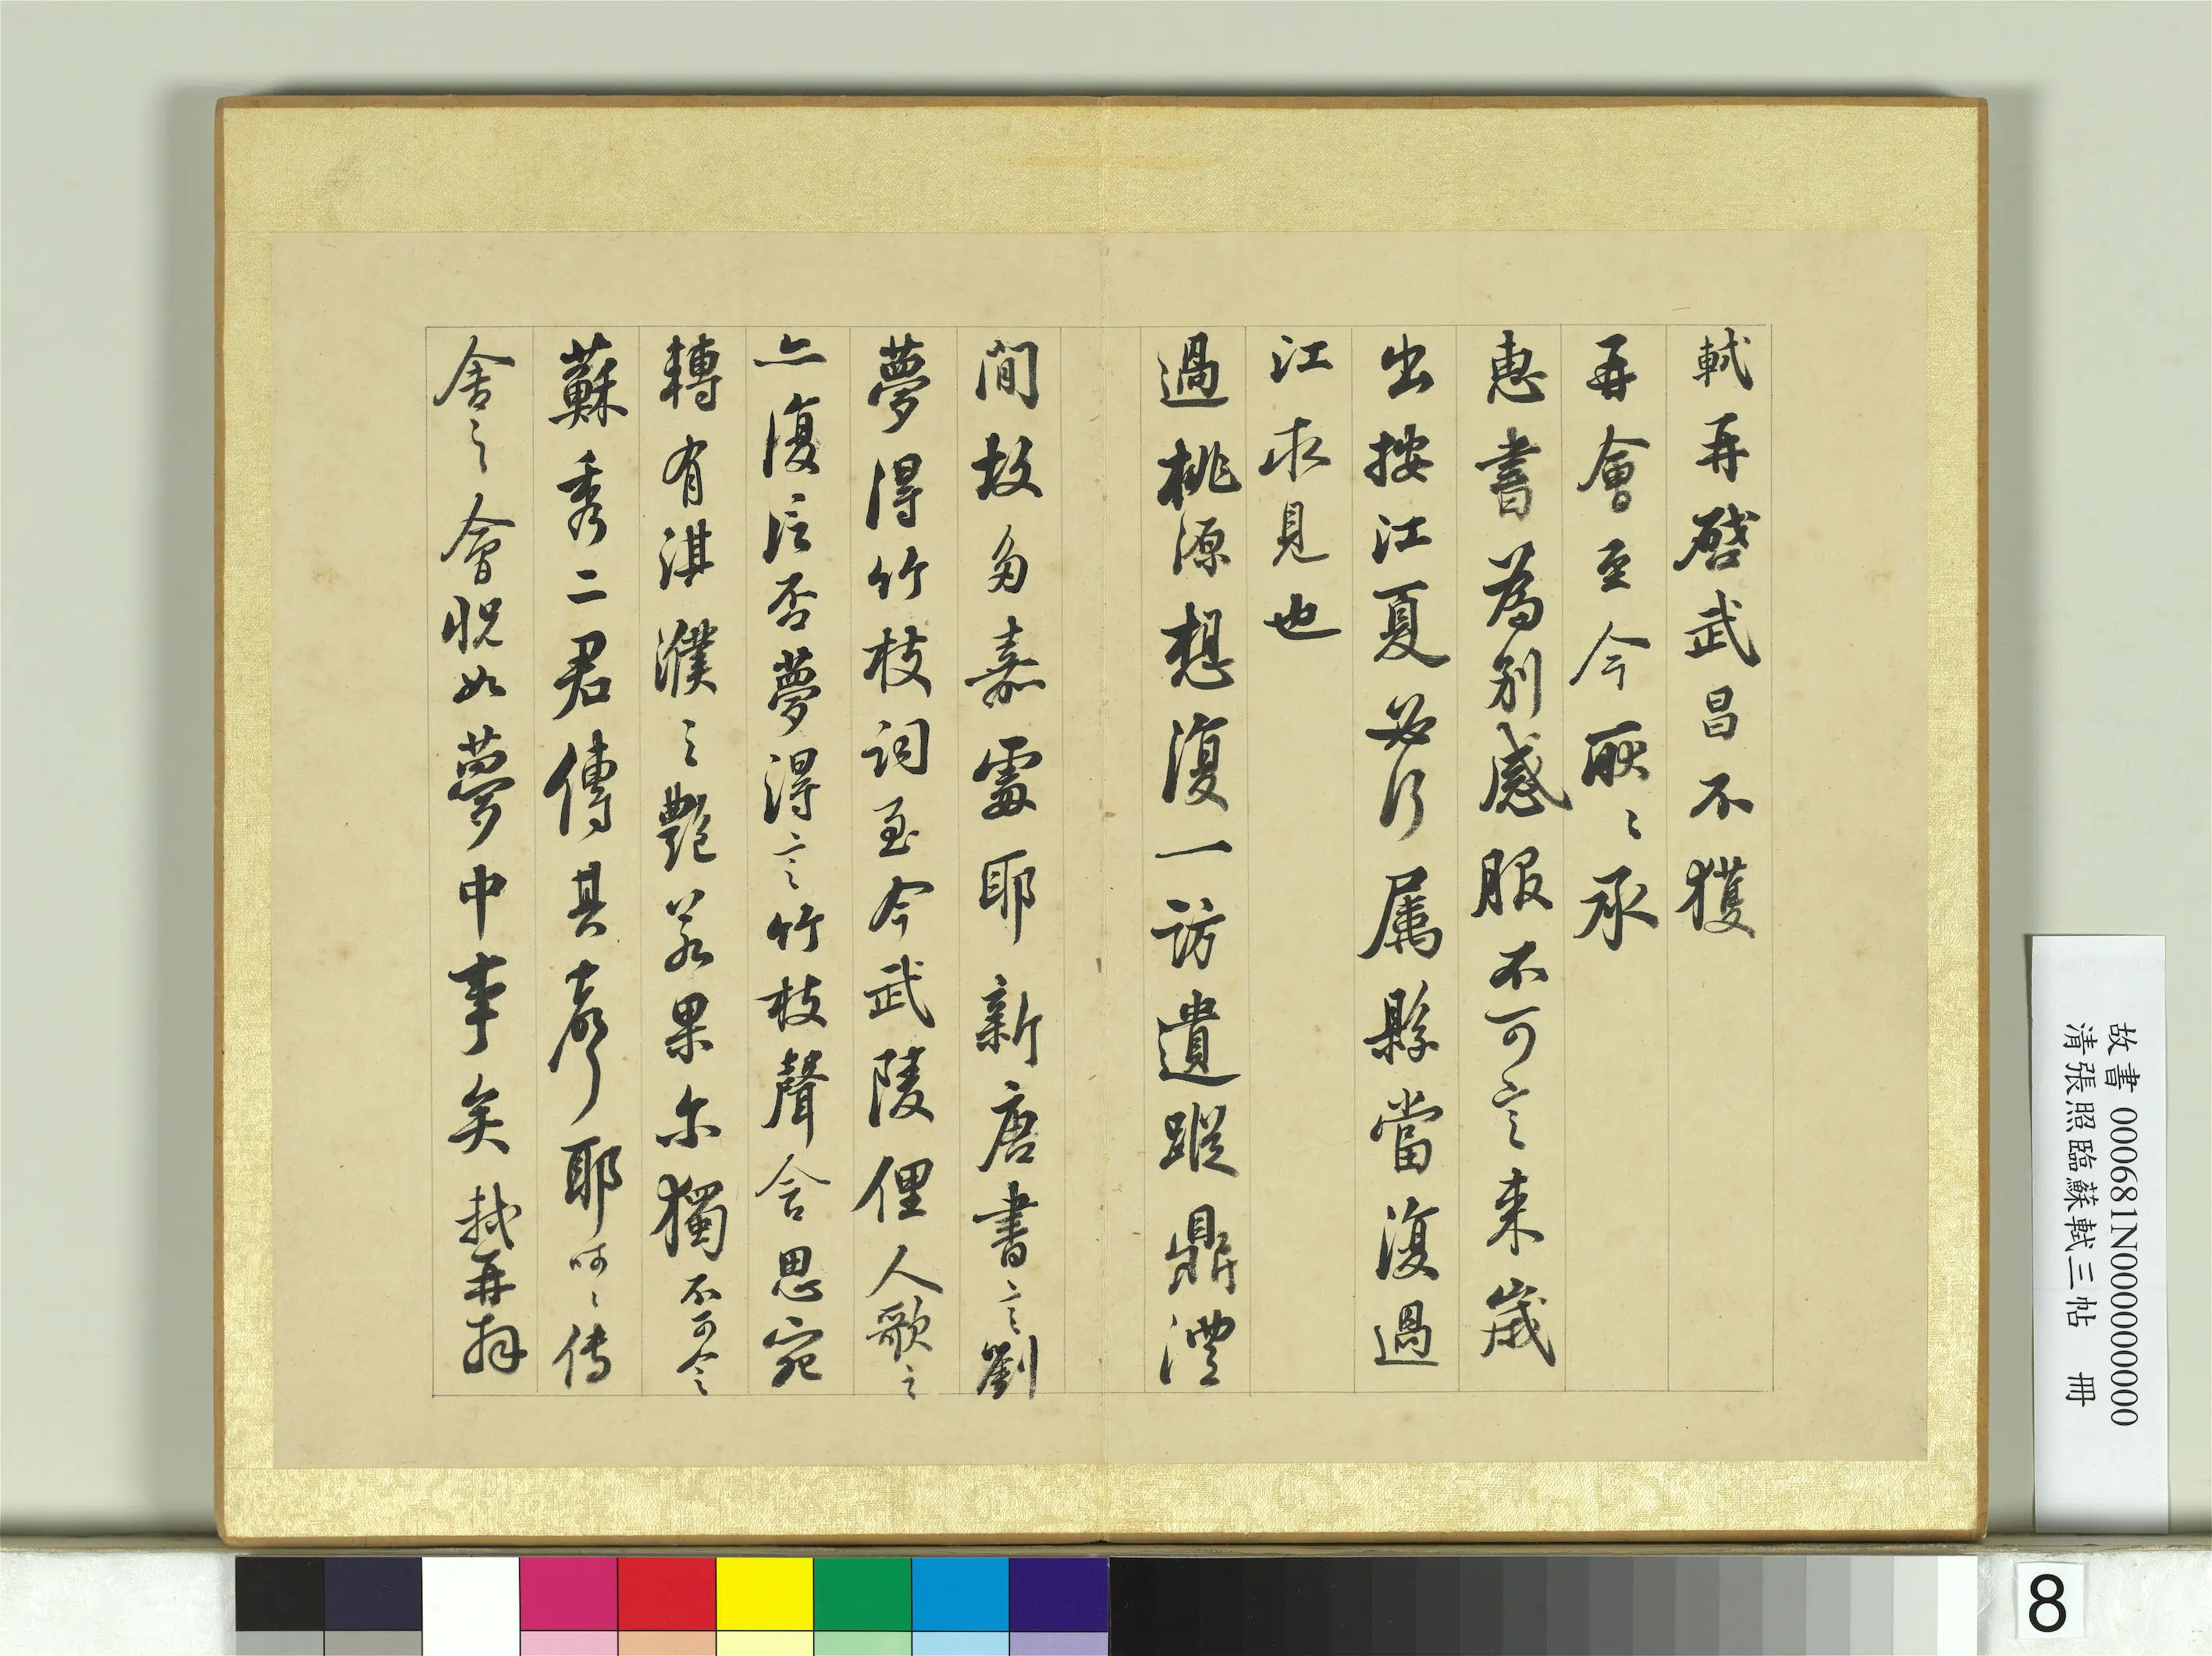 軾再啓武昌不獲
再會至今耿〻承
惠書為別感服不可言来歲
出按江夏必行属縣當復過
江求見也
過桃源想復一訪遺蹤鼎澧
間故多嘉處耶新唐書言劉
夢得竹枝詞至今武陵俚人歌之
亦復信否夢得言竹枝聲含思宛
轉有淇濮之艷若果尔獨不可令
蘇秀二君傳其聲耶呵〻传
舍之會怳如夢中事矣軾再拜
故書 000681N000000000
清張照臨蘇軾三帖 冊
8